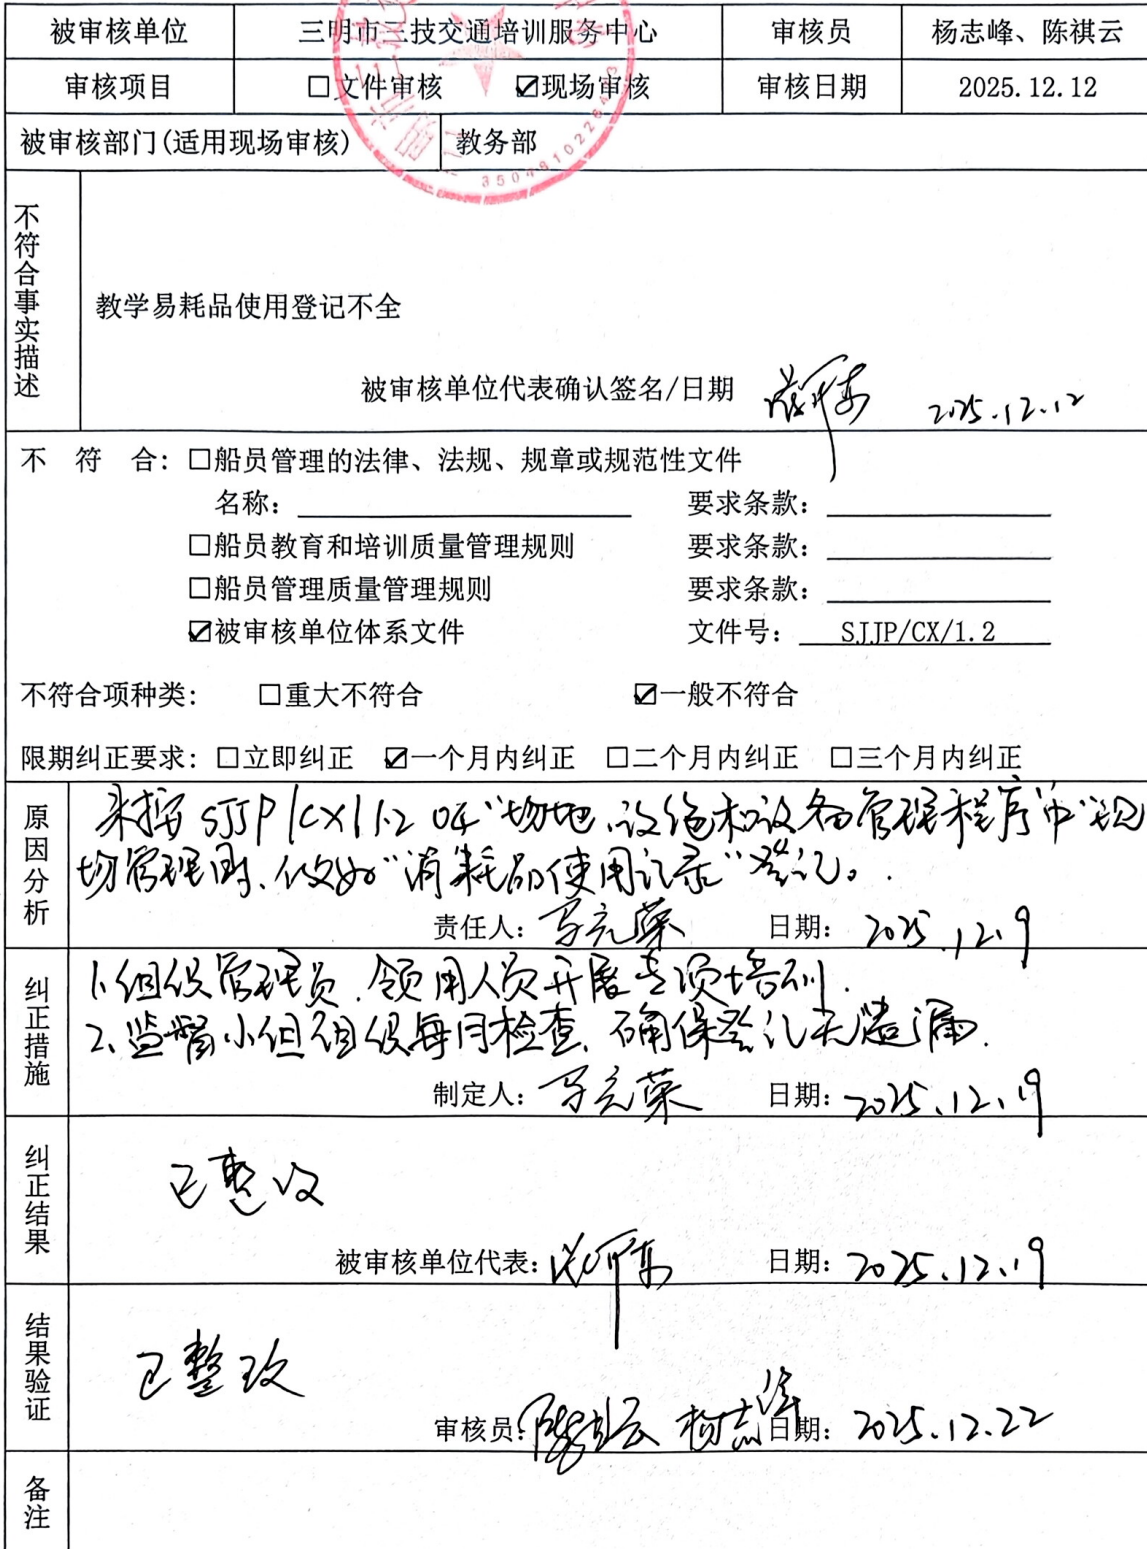 被审核单位 三明市三技交通培训服务中心 审核员 杨志峰、陈祺云
审核项目 □文件审核 ☑现场审核 审核日期 2025.12.12
被审核部门(适用现场审核) 教务部
3504810226443
不符合事实描述
教学易耗品使用登记不全
被审核单位代表确认签名/日期 2025.12.12
不 符 合: □船员管理的法律、法规、规章或规范性文件
名称: 要求条款:
□船员教育和培训质量管理规则 要求条款:
□船员管理质量管理规则 要求条款:
☑被审核单位体系文件 文件号: SJJP/CX/1.2
不符合项种类: □重大不符合 ☑一般不符合
限期纠正要求: □立即纠正 ☑一个月内纠正 □二个月内纠正 □三个月内纠正
原因分析
未按SJJP/CX/1.2 04"场地、设施和设备管理程序"中"现
场管理时、做好"消耗品使用记录"登记。
责任人: 日期: 2025.12.19
纠正措施
1.组织管理员、领用人员开展专项培训.
2.监督小组组织每月检查、确保登记无遗漏.
制定人: 日期: 2025.12.19
纠正结果
已整改
被审核单位代表: 日期: 2025.12.19
结果验证
已整改
审核员: 陈祺云 杨志峰 日期: 2025.12.22
备注